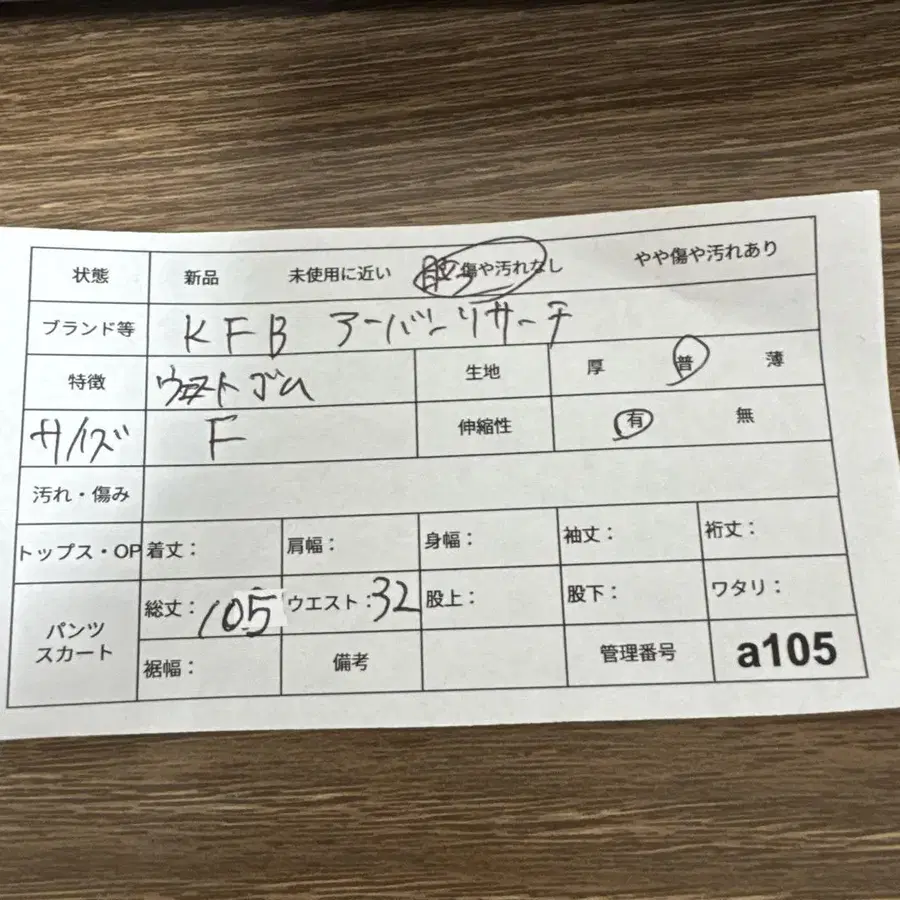 状態 新品 未使用に近い 傷や汚れなし やや傷や汚れあり
ブランド等 KFB アーバンリサーチ
特徴 ウエストゴム 生地 厚 普 薄
サイズ F 伸縮性 有 無
汚れ・傷み
トップス・OP 着丈: 肩幅: 身幅: 袖丈: 裄丈:
パンツ スカート 総丈:105 ウエスト:32 股上: 股下: ワタリ:
裾幅: 備考 管理番号 a105